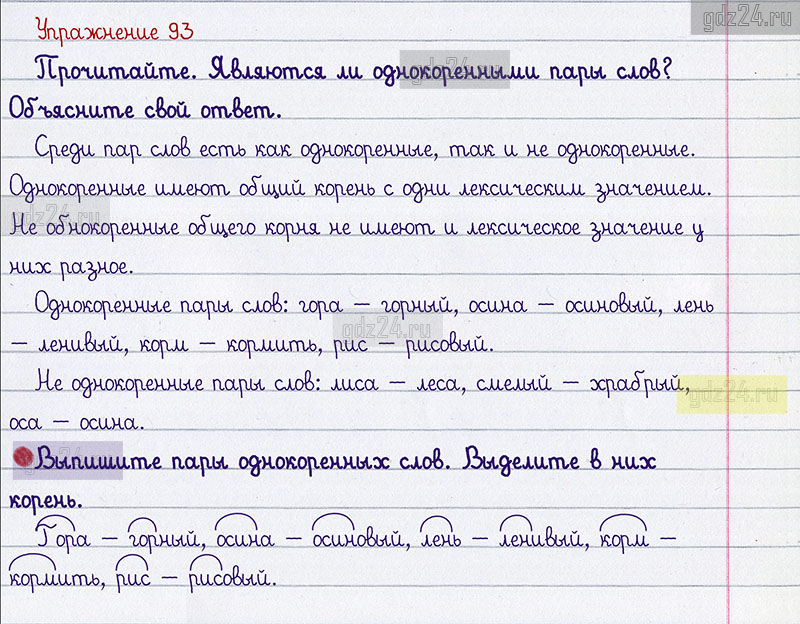 gdz24.ru
Упражнение 93
Прочитайте. Являются ли однокоренными пары слов?
gdz24.ru
Объясните свой ответ.
Среди пар слов есть как однокоренные, так и не однокоренные.
Однокоренные имеют общий корень с одни лексическим значением.
gdz24.ru
Не обнокоренные общего корня не имеют и лексическое значение у
них разное.
Однокоренные пары слов: гора – горный, осина – осиновый, лень
gdz24.ru
– ленивый, корм – кормить, рис – рисовый.
Не однокоренные пары слов: лиса – леса, смелый – храбрый,
gdz24.ru
оса – осина.
Выпишите пары однокоренных слов. Выделите в них
gdz24.ru
корень.
Гора – горный, осина – осиновый, лень – ленивый, корм –
кормить, рис – рисовый.